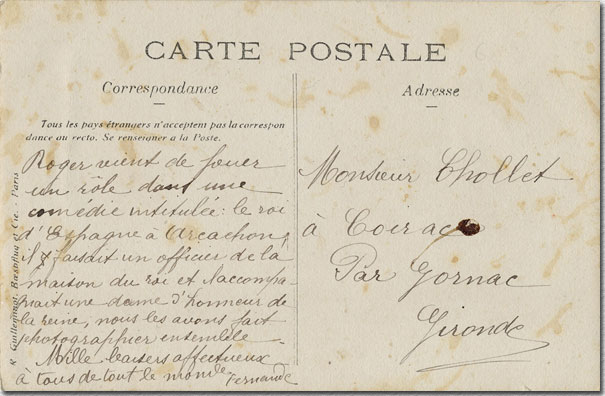 CARTE POSTALE
Correspondance
Tous les pays étrangers n'acceptent pas la correspon
dance au recto. Se renseigner a la Poste.
Roger vient de jouer
un rôle dans une
comédie intitulée: le roi
d'Espagne à Arcachon,
il faisait un officier de la
maison du roi et accompa-
gnait une dame d'honneur de
la reine, nous les avons fait
photographier ensemble
Mille baisers affectueux
à tous de tout le monde.
Fernande
Adresse
Monsieur Chollet
à Coirac
Par Gornac
Gironde
et Cie - Paris